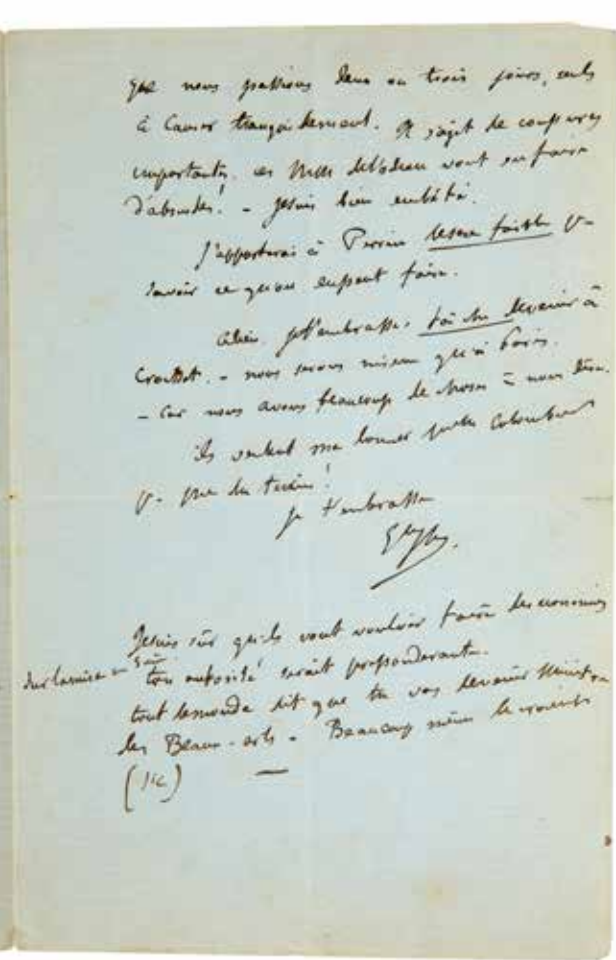 que nous passions deux ou trois jours, seuls
à causer tranquillement. Il s'agit de coupures
importantes. ces MM de l'odéon vont en faire
d'absurdes! - je suis bien embêté.
J'apporterai à Perrin le sexe faible p.
savoir ce qu'on en peut faire.
adieu. je t'embrasse. tâche de venir à
Croisset. - nous serons mieux qu'à Paris.
- Car nous avons beaucoup de choses à nous dire.
ils veulent me donner pour
p. que du !
je t'embrasse

Je suis sûr qu'ils vont vouloir faire des économies
sur la mise en scène
ton autorité serait prépondérante.
tout le monde dit que tu vas devenir ministre
des Beaux-arts - Beaucoup même le croient
(sic) —